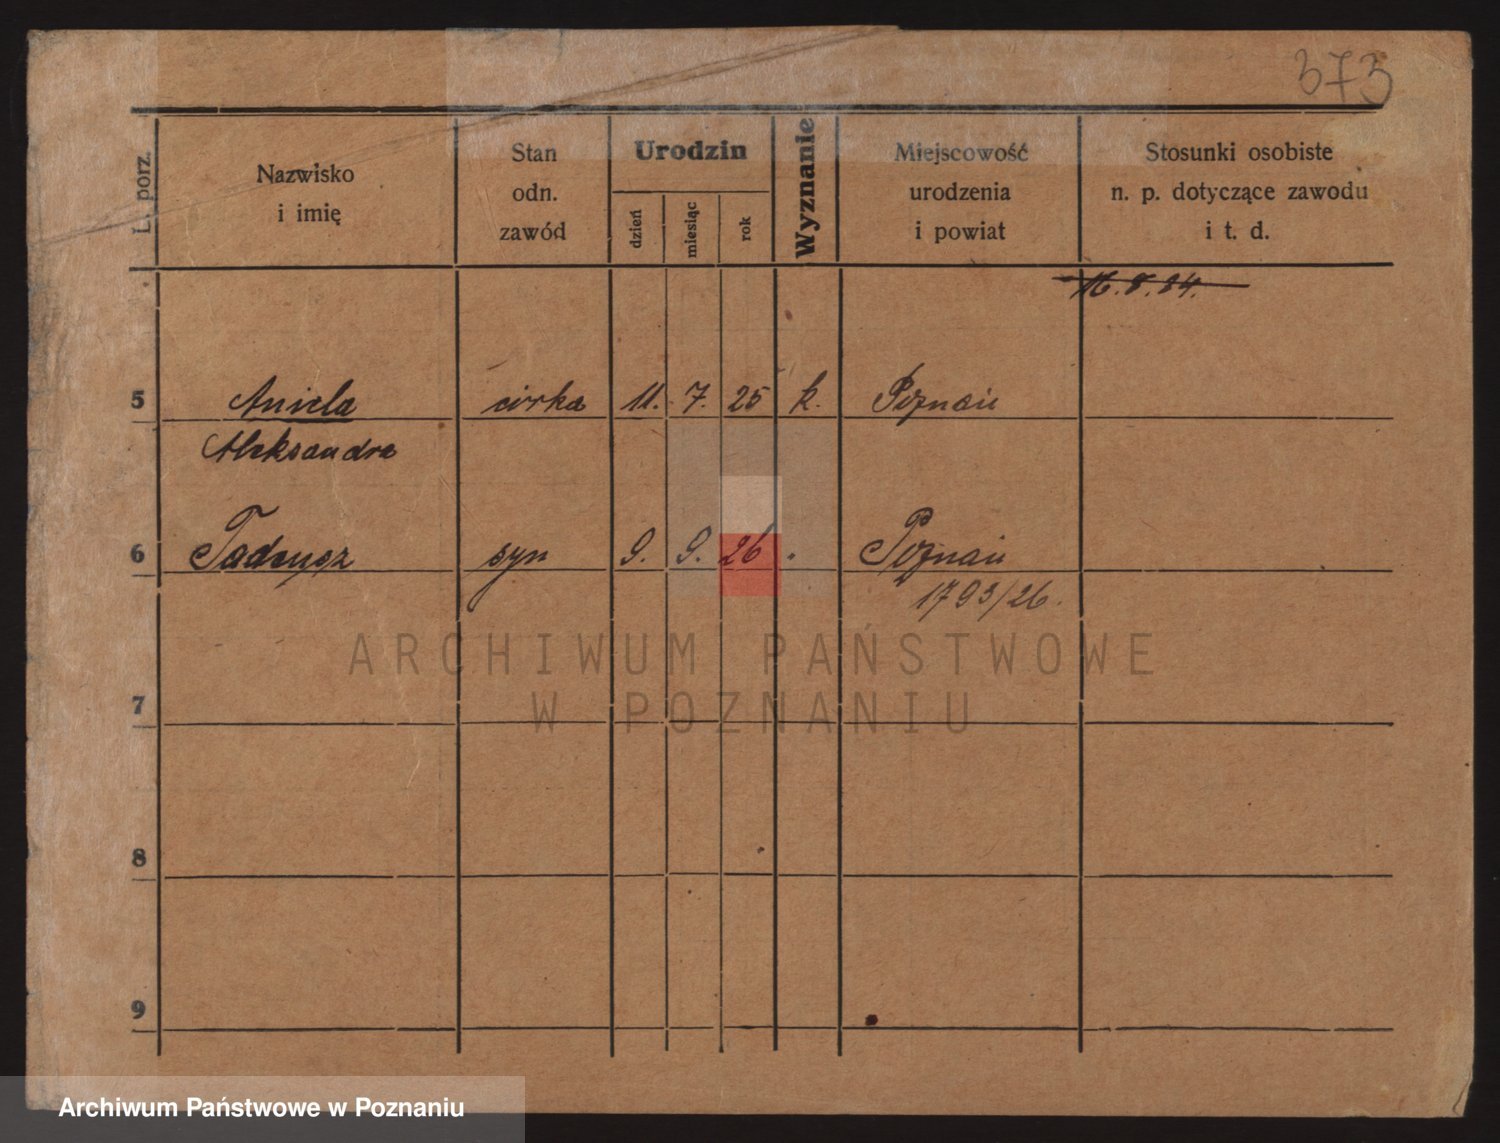 373
L. porz.
Nazwisko
i imię
Stan
odn.
zawód
Urodzin
dzień
miesiąc
rok
Wyznanie
Miejscowość
urodzenia
i powiat
Stosunki osobiste
n. p. dotyczące zawodu
i t. d.
5 Aniela córka 11. 7. 25 k. Poznań
Aleksandra
6 Tadeusz syn 9. 9. 26 " Poznań
1793/26.
ARCHIWUM PAŃSTWOWE
W POZNANIU
7
8
9
Archiwum Państwowe w Poznaniu